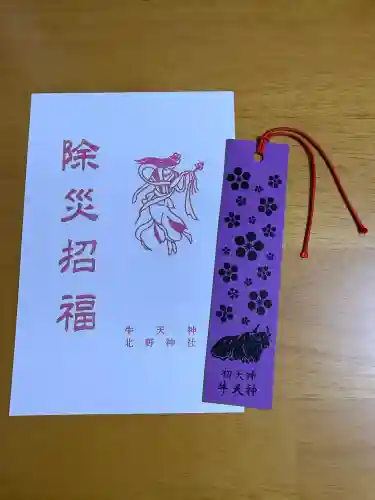 除災招福
牛天神
北野神社
初天神
牛天神